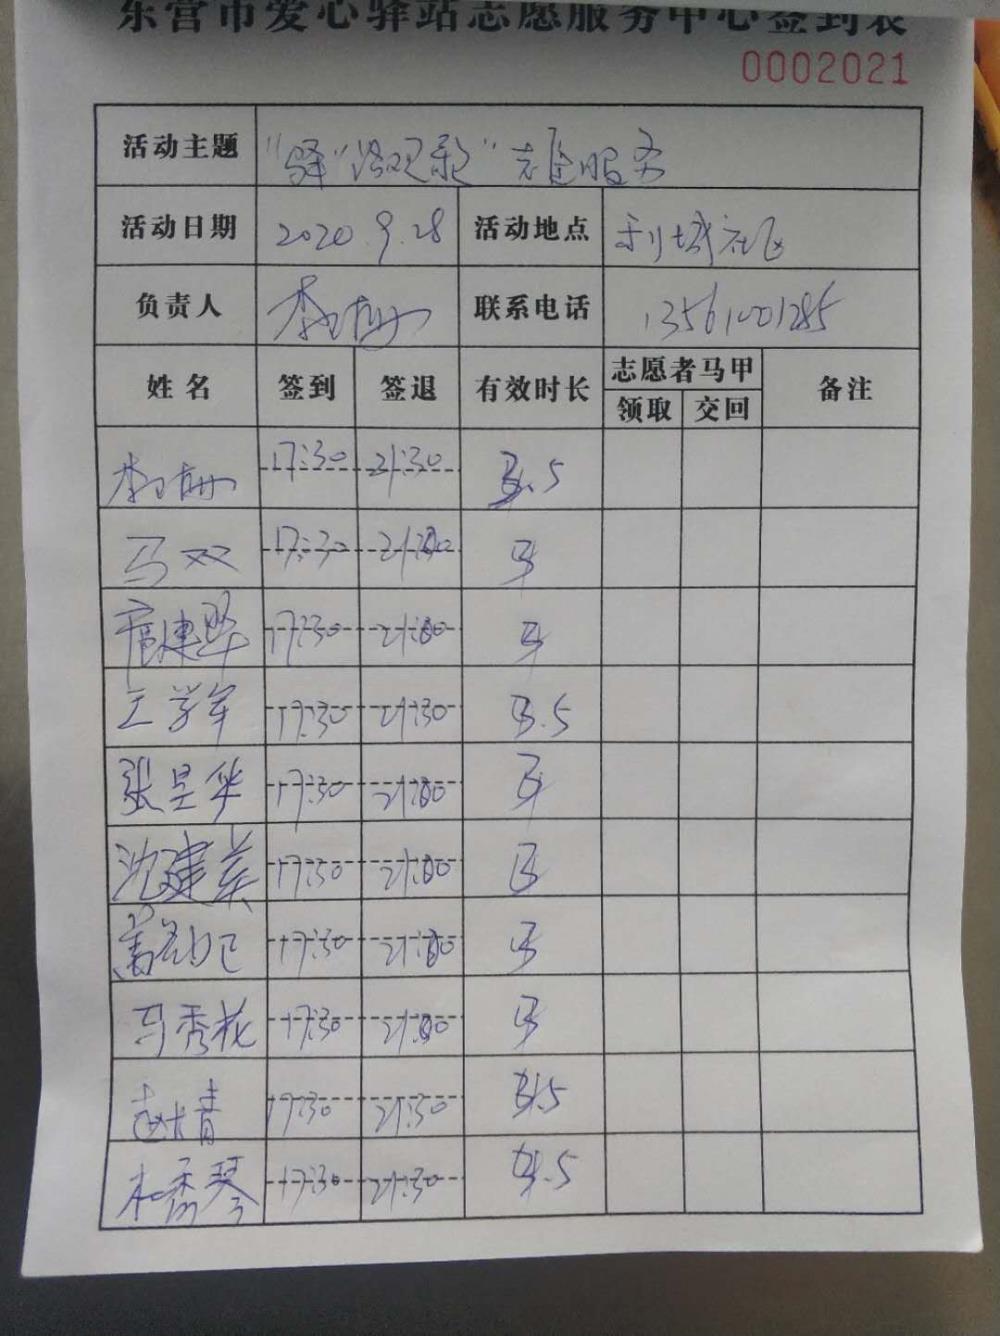 东营市爱心驿站志愿服务中心签到表
0002021
活动主题 "驿" 志愿服务
活动日期 2020.9.28 活动地点 利城社区
负责人 联系电话 13561001285
姓名 签到 签退 有效时长 志愿者马甲 备注
领取 交回
17:30 21:30 .5
马双 17:30 21:00
建 17:30 21:00
王学军 17:30 21:30 .5
张昱华 17:30 21:00
沈建英 17:30 21:00
17:30 21:00
马秀花 17:30 21:00
赵 青 17:30 21:30 .5
秀琴 17:30 21:30 .5